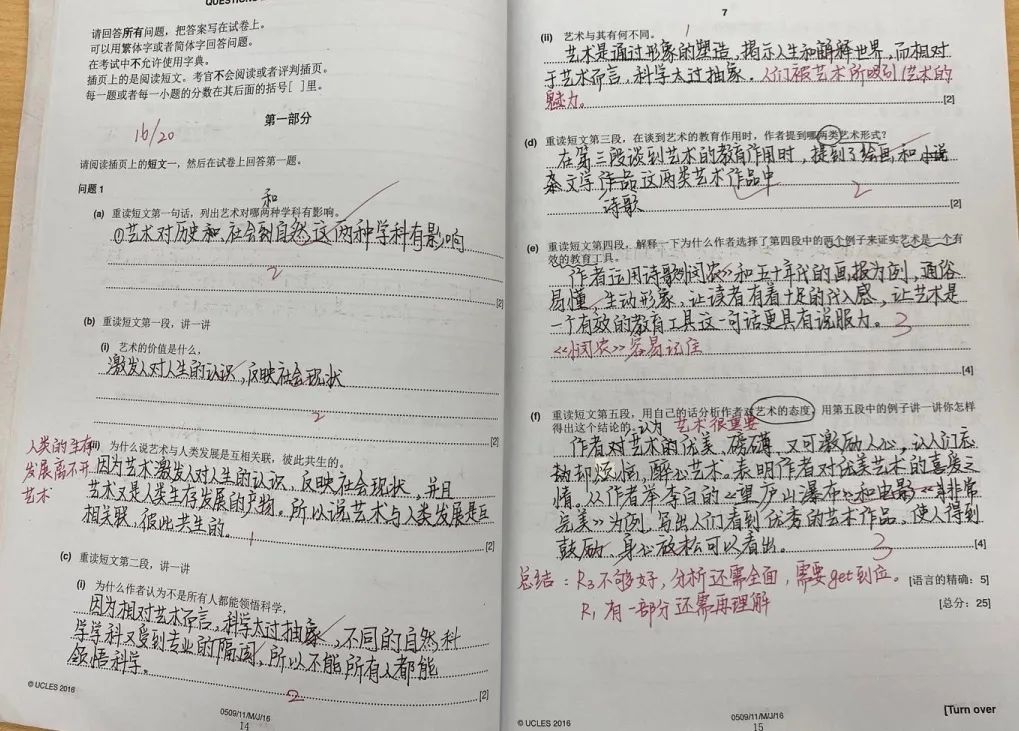 QUESTIONS
请回答所有问题，把答案写在试卷上。
可以用繁体字或者简体字回答问题。
在考试中不允许使用字典。
插页上的是阅读短文。考官不会阅读或者评判插页。
每一题或者每一小题的分数在其后面的括号[ ]里。
第一部分
16/20
请阅读插页上的短文一，然后在试卷上回答第一题。
问题 1
和
(a) 重读短文第一句话，列出艺术对哪两种学科有影响。
①艺术对历史和、社会到自然这两种学科有影响
2
[2]
(b) 重读短文第一段，讲一讲
(i) 艺术的价值是什么，
激发人对人生的认识，反映社会现状
2
[2]
(ii) 为什么说艺术与人类发展是互相关联，彼此共生的。
人类的生存
发展离不开
艺术
因为艺术激发人对人生的认识、反映社会现状，并且
艺术又是人类生存发展的产物。所以说艺术与人类发展是互
相关联，彼此共生的。
1
[2]
(c) 重读短文第二段，讲一讲
(i) 为什么作者认为不是所有人都能领悟科学，
因为相对艺术而言，科学太过抽象，不同的自然科
学学科又受到专业的隔阂，所以不能所有人都能
领悟科学。
2
[2]
© UCLES 2016
0509/11/M/J/16
14
7
(ii) 艺术与其有何不同。
1
艺术是通过形象的塑造，揭示人生和解释世界，而相对
于艺术而言，科学太过抽象。人们被艺术所吸引艺术的
魅力。
[2]
(d) 重读短文第三段，在谈到艺术的教育作用时，作者提到哪两类艺术形式？
在第三段谈到艺术的教育作用时，提到了绘画和
文学作品这两类艺术作品中
诗歌
2
[2]
(e) 重读短文第四段，解释一下为什么作者选择了第四段中的两个例子来证实艺术是一个有
效的教育工具。
作者运用诗歌《悯农》和五十年代的画报为例，通俗
易懂，生动形象，让读者有着十足的代入感，让艺术是
一个有效的教育工具这一句话更具有说服力。
3
《悯农》容易记住
[4]
(f) 重读短文第五段，用自己的话分析作者对艺术的态度，用第五段中的例子讲一讲你怎样
得出这个结论的。
认为 艺术很重要
作者对艺术的优美、磅礴、又可激励人心，让人们忘
却烦恼，醉心艺术。表明作者对优美艺术的喜爱之
情。从作者举李白的《望庐山瀑布》和电影《非常
完美》为例，写出人们看到优秀的艺术作品，使人得到
鼓励、身心放松可以看出。
3
[4]
总结：R3不够好，分析还需全面，需要get到应。
[语言的精确：5]
R1有一部分还需再理解
[总分：25]
© UCLES 2016
0509/11/M/J/16
15
[Turn over